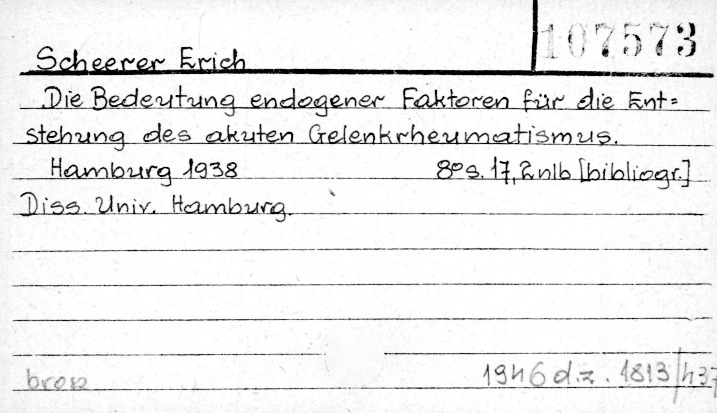 107573
Scheerer Erich
Die Bedeutung endogener Faktoren für die Ent=
stehung des akuten Gelenkrheumatismus.
Hamburg 1938 8° s. 17, 2 nlb [bibliogr.]
Diss. Univ. Hamburg.
brosz 1946 d.z. 1813/437